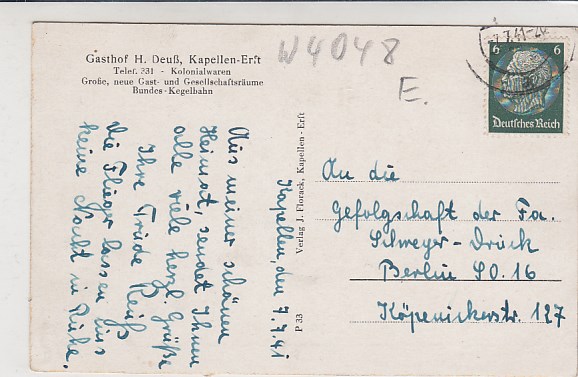 Gasthof H. Deuß, Kapellen-Erft
Telef. 331 - Kolonialwaren
Große, neue Gast- und Gesellschaftsräume
Bundes-Kegelbahn
W4048
E.
7.7.41
6 6
Deutsches Reich
Kapellen, den 7.7.41
Aus meiner schönen
Heimat, sendet Ihnen
alle viele herzl. Grüße
Ihre Friede Reiß
Die Flieger lassen uns
keine Nacht in Ruhe.
Verlag J. Florack, Kapellen-Erft
P 33
An die
Gefolgschaft der Fa.
Schweyer-Druck
Berlin SO. 16
Köpenickerstr. 127